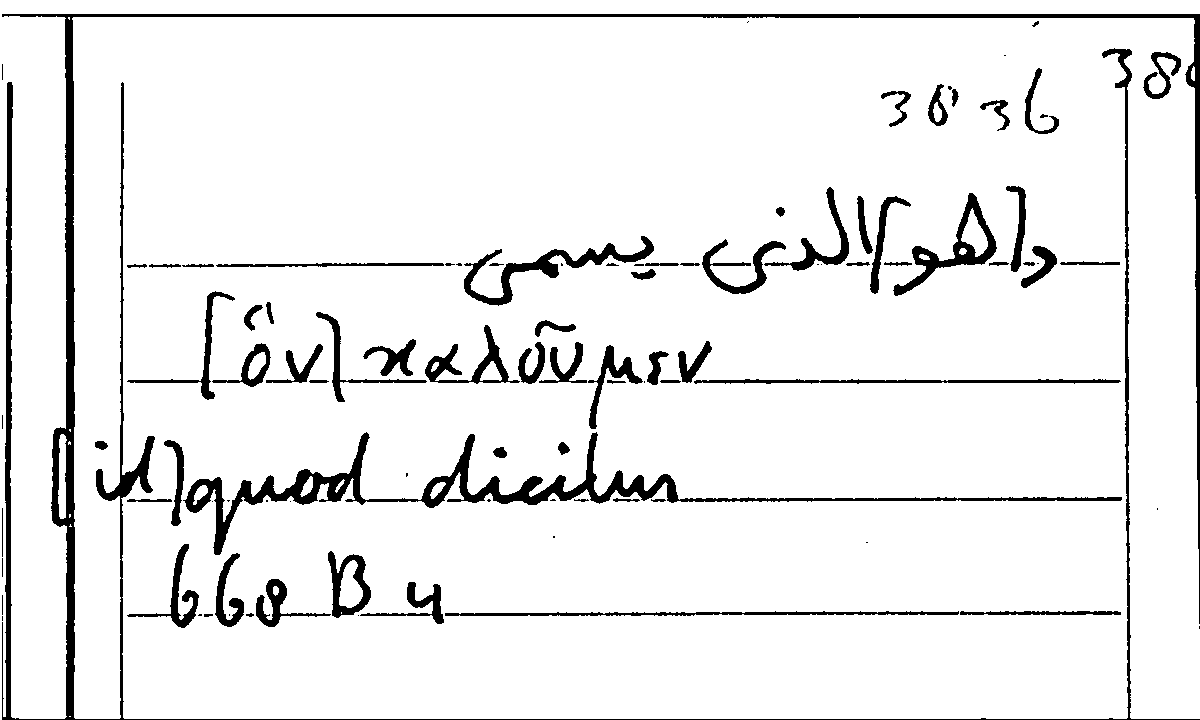 380
3836
و[هو] الذى يسمى
[ὃν] καλοῦμεν
[id] quod dicitur
668 B 4